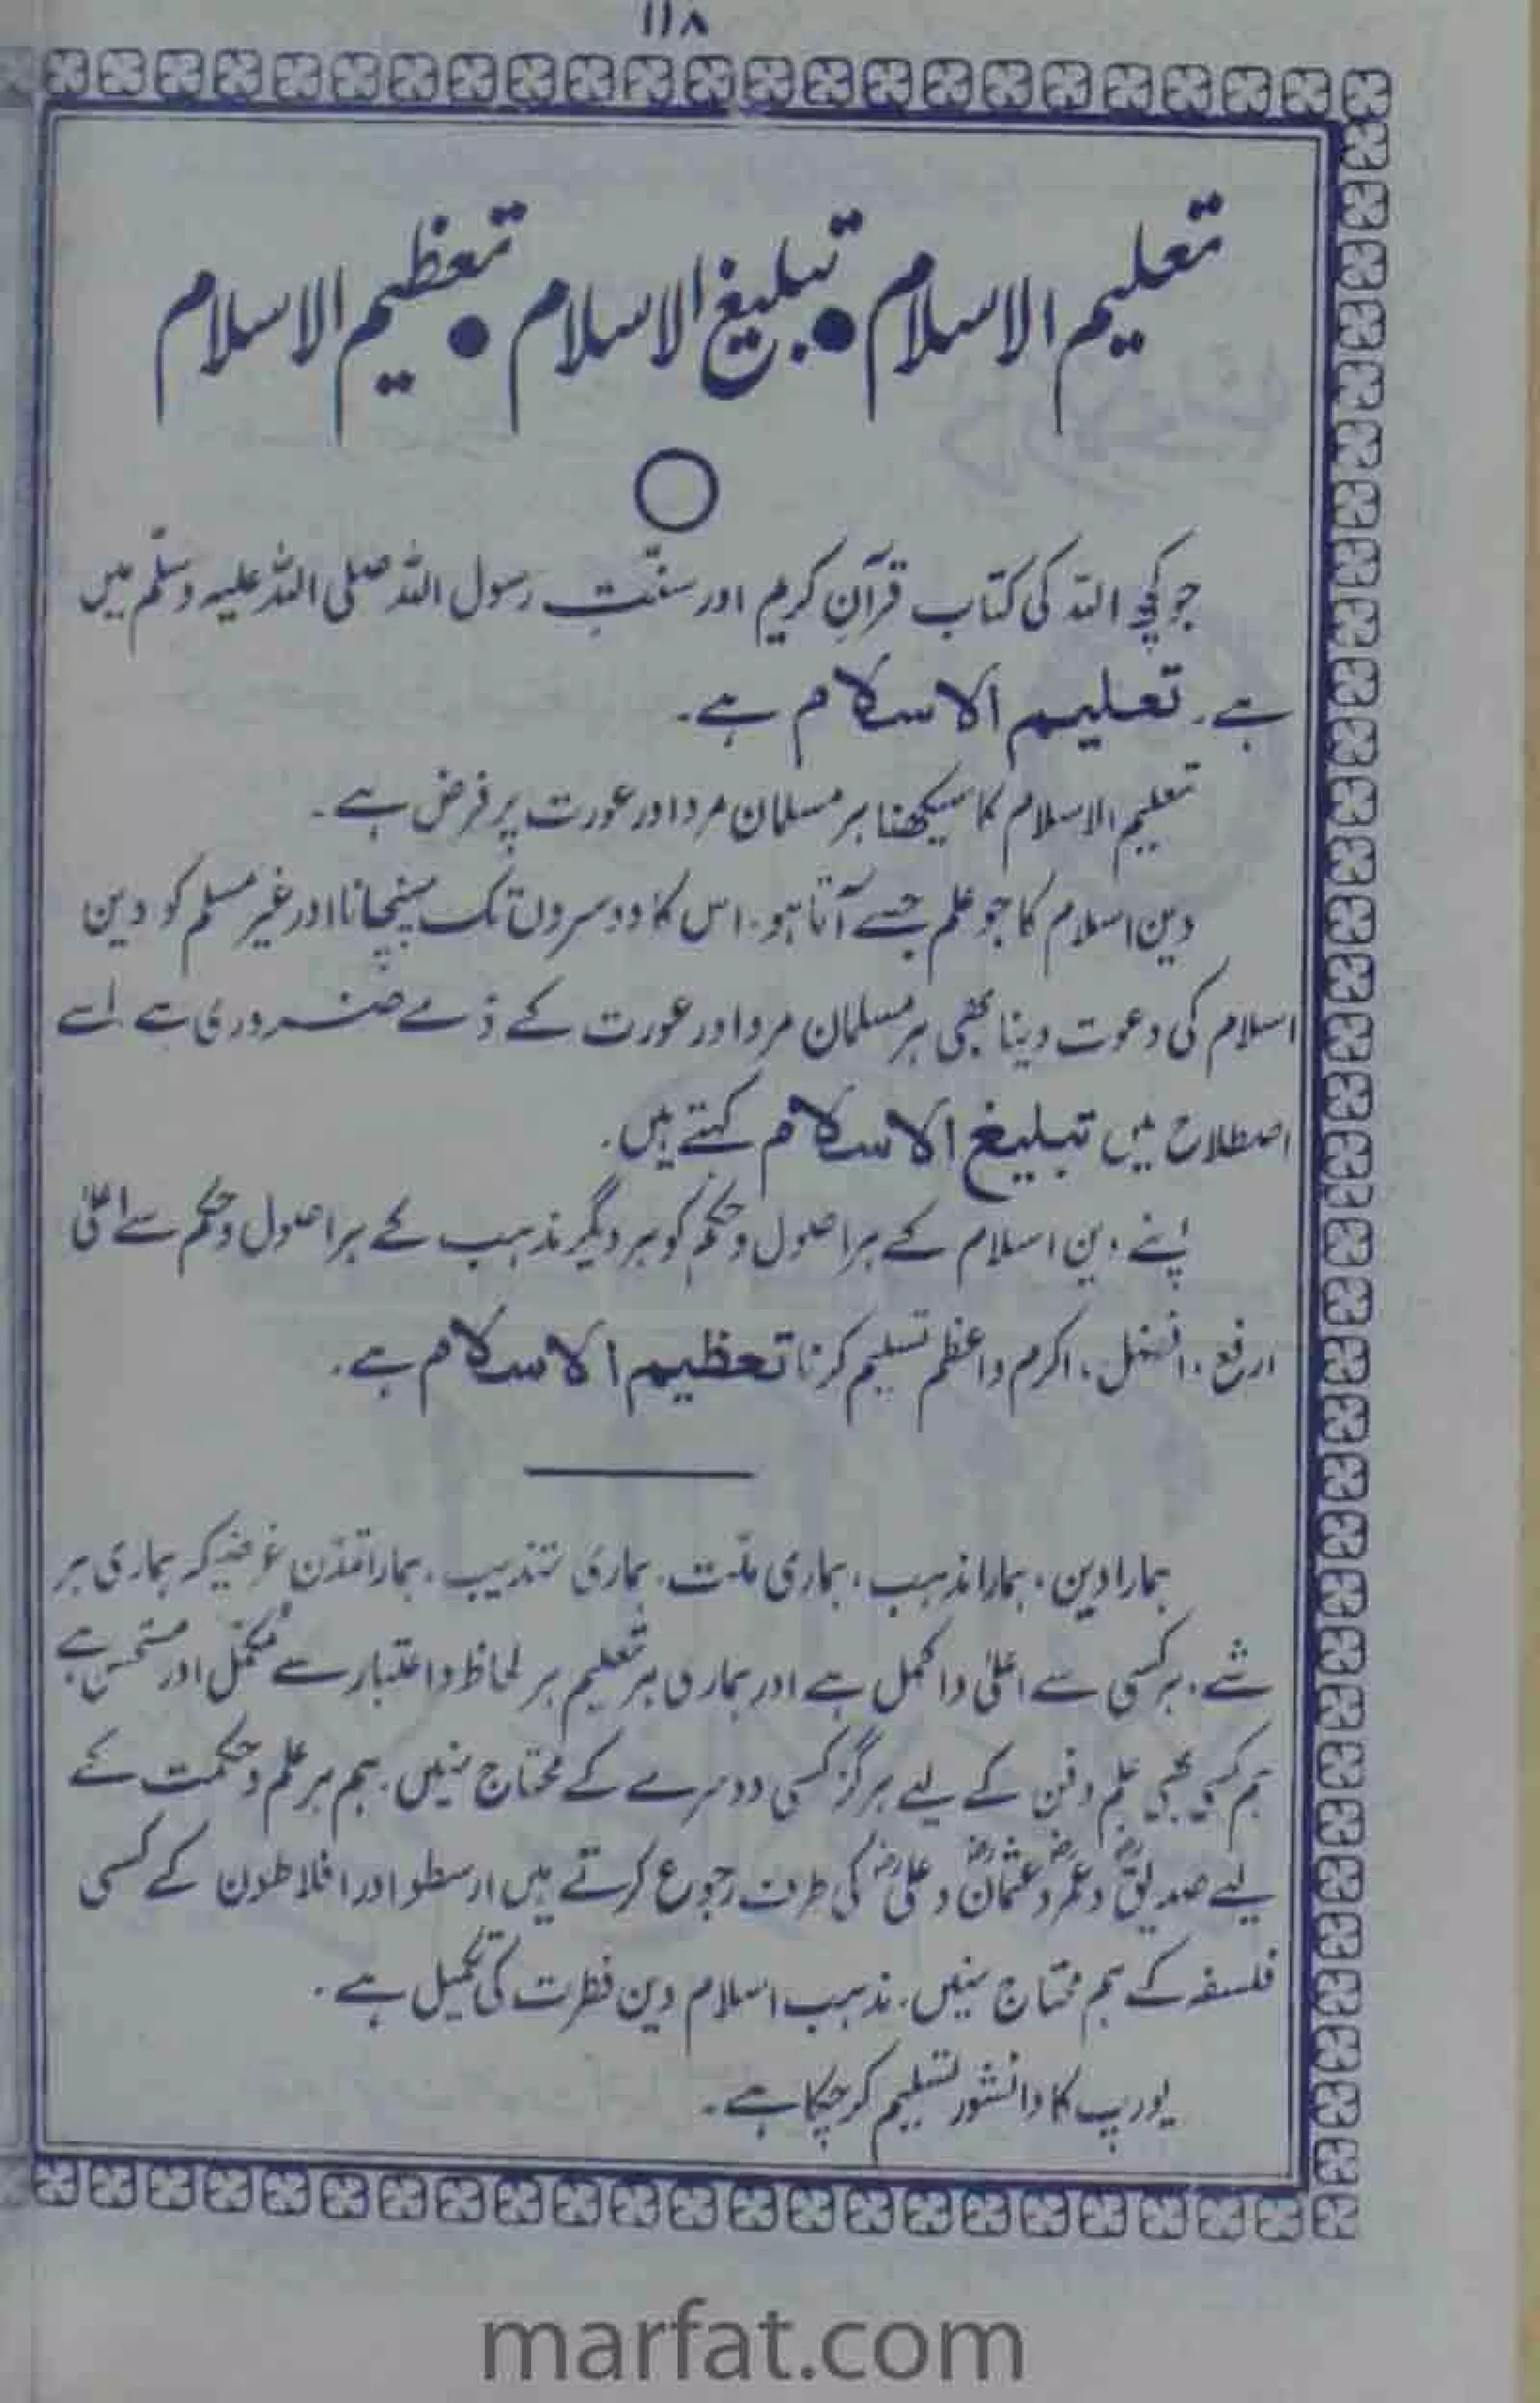 ۱۱۸
تعلیم الاسلام ● تبلیغ الاسلام ● تعظیم الاسلام
جو کچھ اللہ کی کتاب قرآنِ کریم اور سنّتِ رسول اللہ صلی اللہ علیہ وسلّم میں
ہے۔ تعلیم الاسلام ہے۔
تعلیم الاسلام کا سیکھنا ہر مسلمان مرد اور عورت پر فرض ہے۔
دین اسلام کا جو علم جسے آتا ہو۔ اس کا دوسروں تک پہنچانا اور غیر مسلم کو دین
اسلام کی دعوت دینا بھی ہر مسلمان مرد اور عورت کے ذمے ضروری ہے اسے
اصطلاح میں تبلیغ الاسلام کہتے ہیں۔
اپنے دین اسلام کے ہر اصول و حکم کو ہر دیگر مذہب کے ہر اصول و حکم سے اعلیٰ
ارفع، افضل، اکرم و اعظم تسلیم کرنا تعظیم الاسلام ہے۔
ہمارا دین، ہمارا مذہب، ہماری ملّت، ہماری تہذیب، ہمارا تمدّن غرضیکہ ہماری ہر
شے، ہر کسی سے اعلیٰ و اکمل ہے اور ہماری ہر تعلیم ہر لحاظ و اعتبار سے مکمّل اور مستحسن ہے
ہم کسی بھی علم و فن کے لیے ہرگز کسی دوسرے کے محتاج نہیں۔ ہم ہر علم و حکمت کے
لیے صدیقؓ و عمرؓ و عثمانؓ و علیؓ کی طرف رجوع کرتے ہیں ارسطو اور افلاطون کے کسی
فلسفہ کے ہم محتاج نہیں۔ مذہب اسلام دین فطرت کی تکمیل ہے۔
یورپ کا دانشور تسلیم کر چکا ہے۔
marfat.com